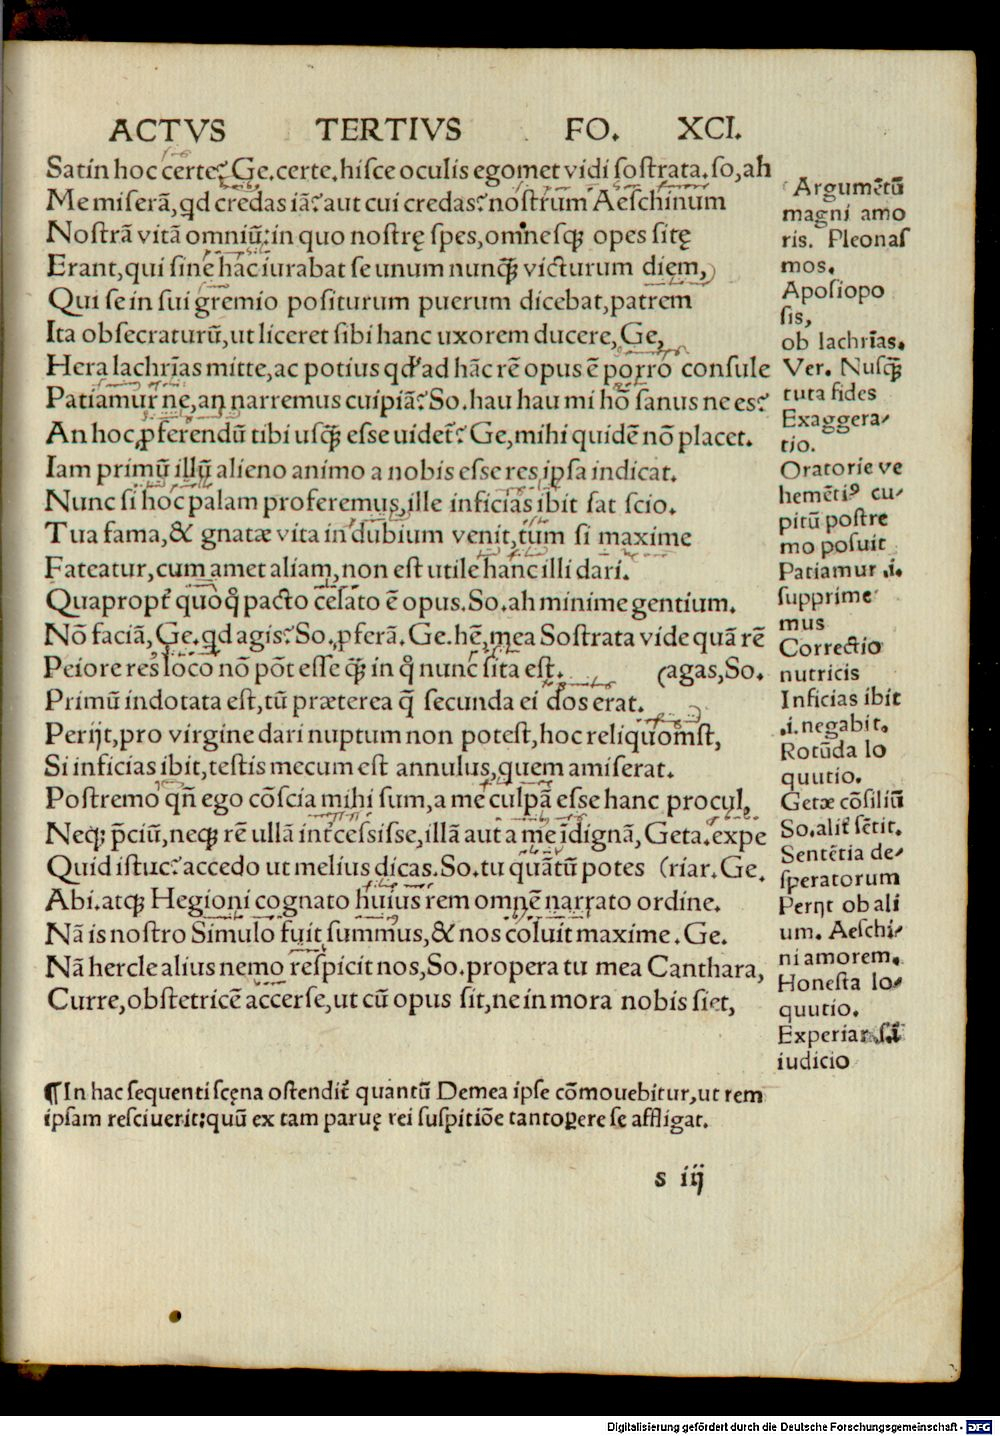 ACTVS TERTIVS FO. XCI.
Satin hoc certe? Ge. certe, hisce oculis egomet vidi sostrata. so, ah
Me miserã, qd credas iã? aut cui credas? nostrum Aeschinum
Nostrã vitã omniũ: in quo nostrę spes, omnesq́ꝫ opes sitę
Erant, qui sine hac iurabat se unum nunq̃ꝫ victurum diem,
Qui se in sui gremio positurum puerum dicebat, patrem
Ita obsecraturũ, ut liceret sibi hanc uxorem ducere, Ge,
Hera lachrĩas mitte, ac potius qđ ad hãc rẽ opus ẽ porro consule
Patiamur ne, an narremus cuipiã? So. hau hau mi hõ sanus ne es?
An hoc ꝓferendũ tibi usq̃ꝫ esse uidet̃? Ge, mihi quidẽ nõ placet.
Iam primũ illũ alieno animo a nobis esse res ipsa indicat.
Nunc si hoc palam proferemus, ille inficias ibit sat scio.
Tua fama, & gnatæ vita in dubium venit, tum si maxime
Fateatur, cum amet aliam, non est utile hanc illi dari.
Quapropt̃ quoq̊ pacto cesato ẽ opus. So. ah minime gentium.
Nõ faciã, Ge. qd agis? So. ꝓferã. Ge. hẽ, mea Sostrata vide quã rẽ
Peiore res loco nõ põt esse q̃ꝫ in q̊ nunc sita est. (agas, So.
Primũ indotata est, tũ præterea q̃ secunda ei dos erat.
Perijt, pro virgine dari nuptum non potest, hoc reliquomst,
Si inficias ibit, testis mecum est annulus, quem amiserat.
Postremo qñ ego cõscia mihi sum, a me culpã esse hanc procul,
Neq́ꝫ p̃ciũ, neq́ꝫ rẽ ullã int̃cessisse, illã aut a me ĩdignã, Geta. expe
Quid istuc? accedo ut melius dicas. So. tu quãtũ potes (riar. Ge.
Abi. atq́ꝫ Hegioni cognato huius rem omnẽ narrato ordine.
Nã is nostro Simulo fuit summus, & nos coluit maxime. Ge.
Nã hercle alius nemo respicit nos, So. propera tu mea Canthara,
Curre, obstetricẽ accerse, ut cũ opus sit, ne in mora nobis siet,
Argumẽtũ
magni amo
ris. Pleonas
mos.
Aposiopo
sis,
ob lachrĩas.
Ver. Nusq̃ꝫ
tuta fides
Exaggera-
tio.
Oratorie ve
hemẽtiꝰ cu-
pitũ postre
mo posuit
Patiamur .i.
supprime
mus
Correctio
nutricis
Inficias ibit
.i. negabit.
Rotũda lo
quutio.
Getæ cõsiliũ
So. alit̃ sẽtit.
Sentẽtia de-
speratorum
Perijt ob ali
um. Aeschi-
ni amorem.
Honesta lo-
quutio.
Experiar .s. ĩ
iudicio
¶ In hac sequenti scęna ostendit̃ quantũ Demea ipse cõmovebitur, ut rem
ipsam resciverit: quũ ex tam paruę rei suspitiõe tantoꝑe se affligat.
s iij
Digitalisierung gefördert durch die Deutsche Forschungsgemeinschaft - DFG